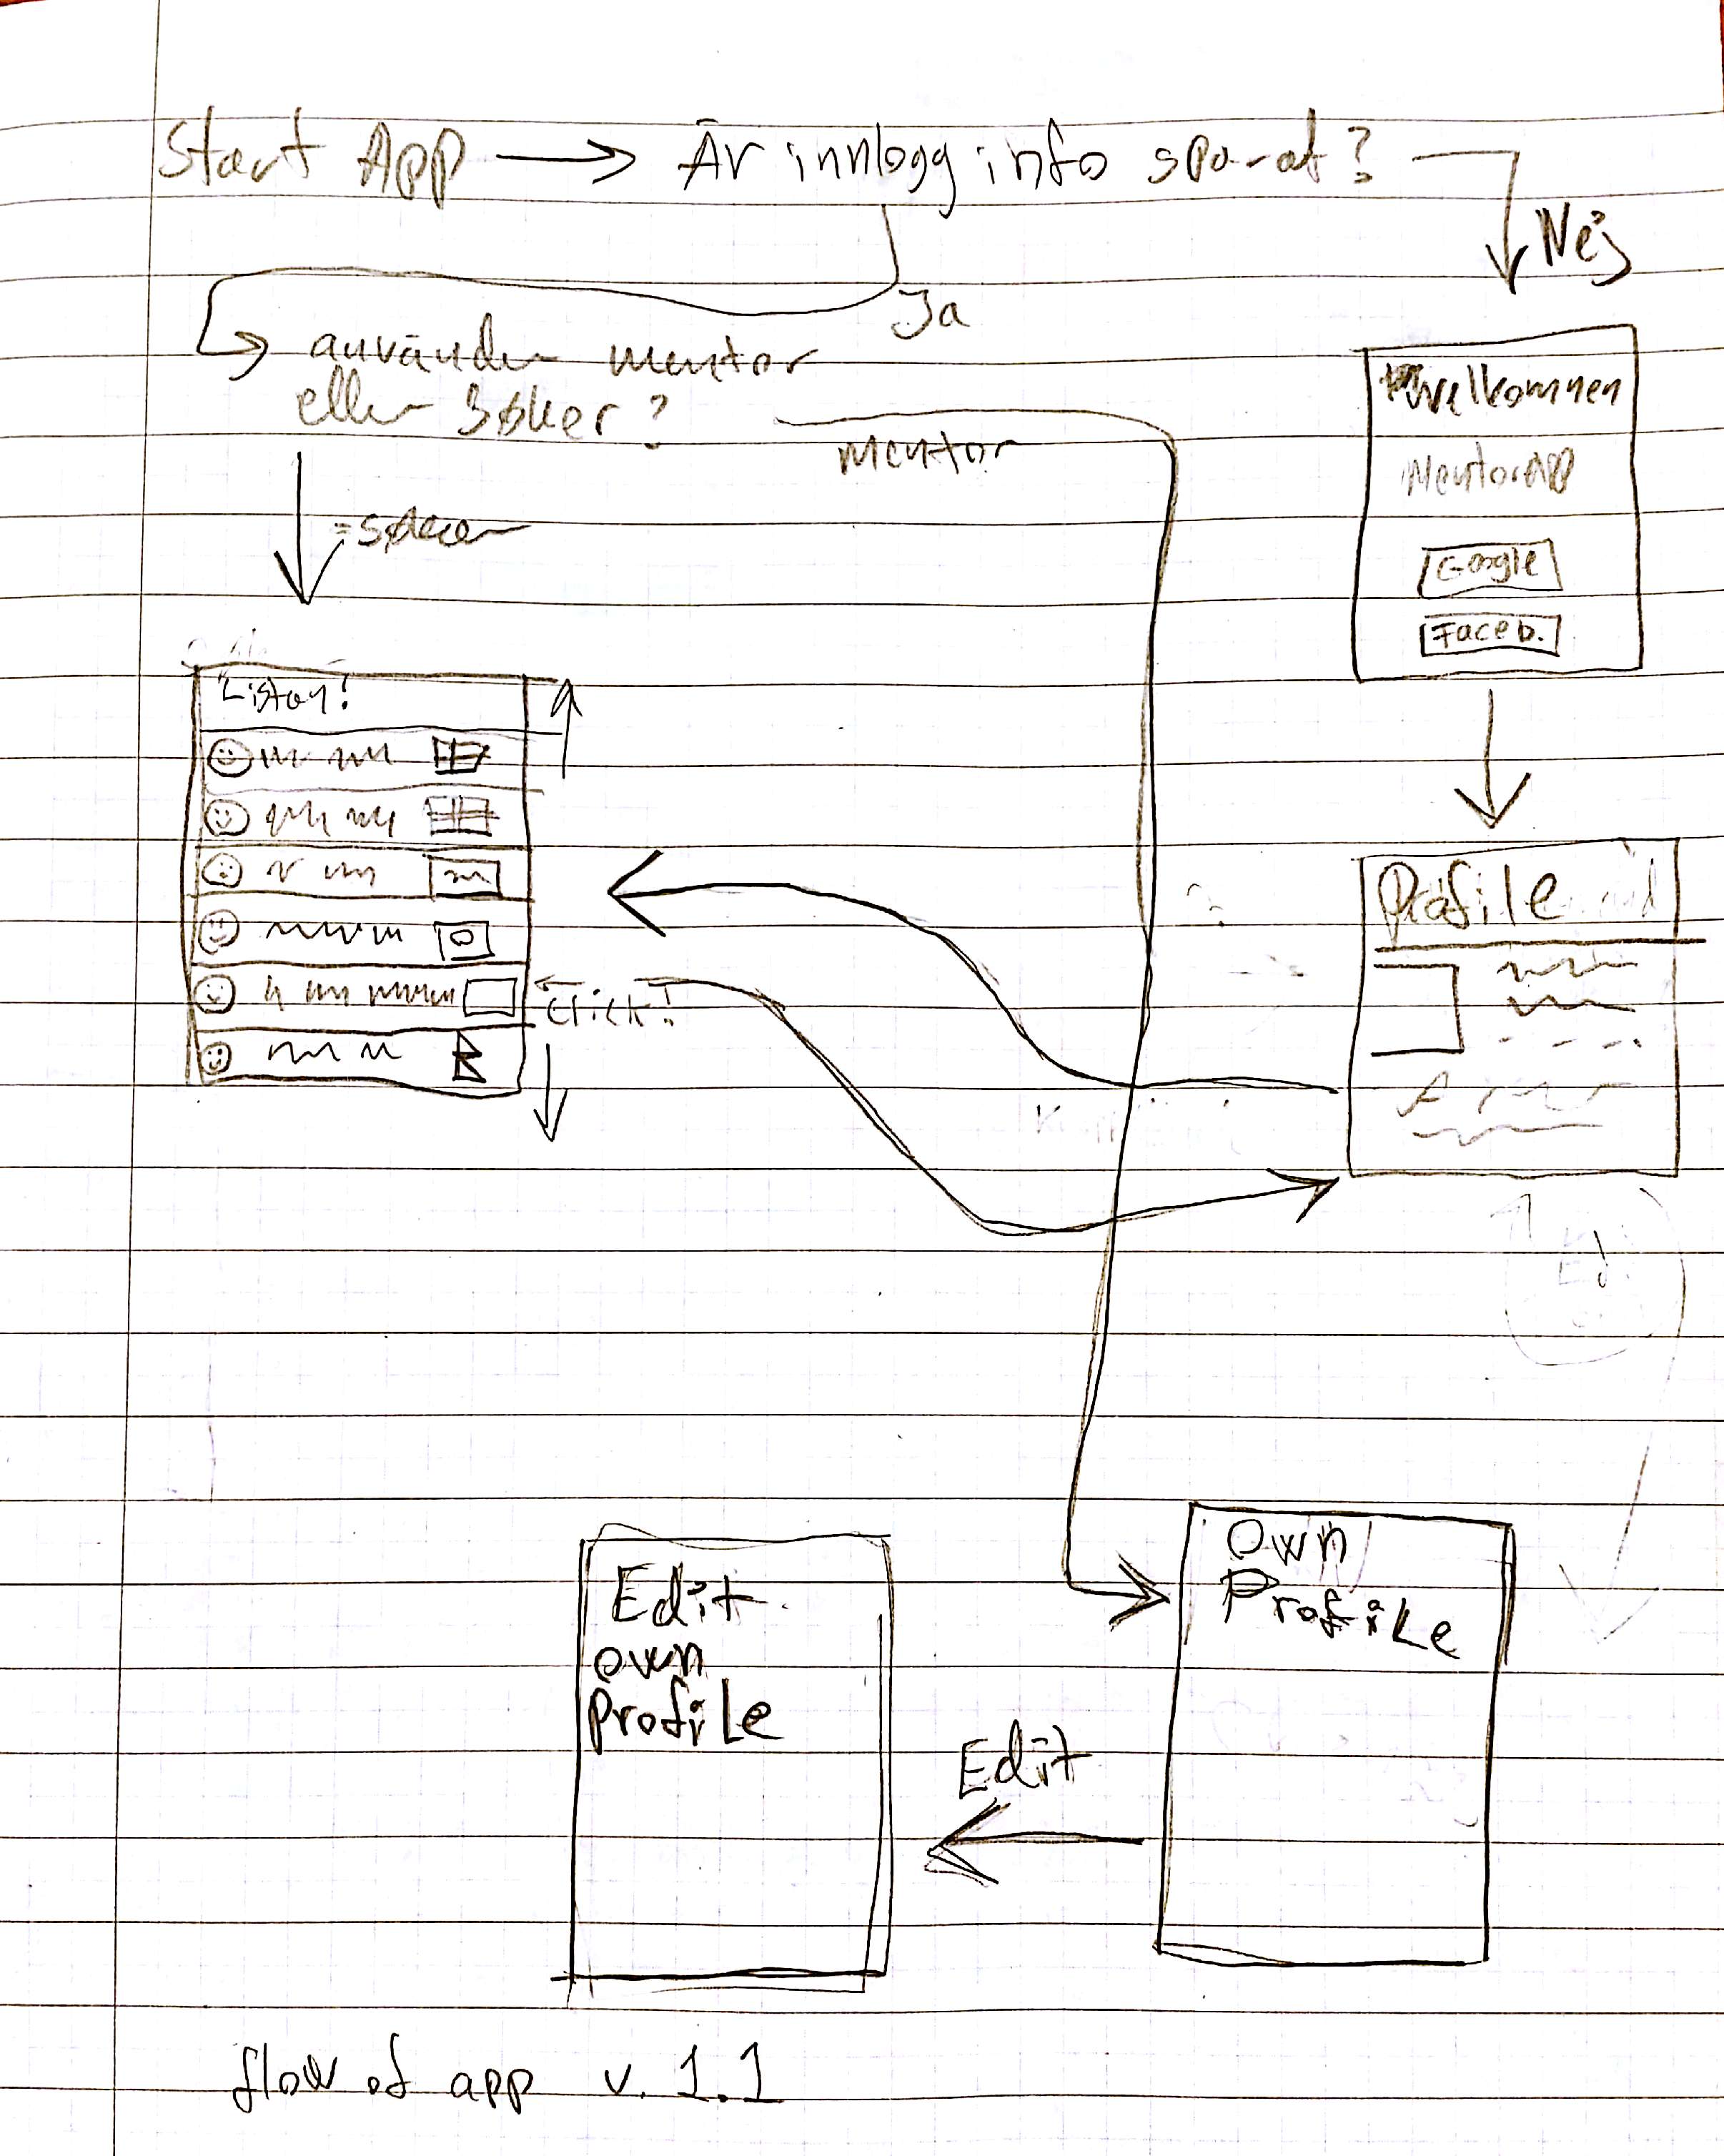 Start App → Är innlogg info sparat?
Nej
Ja
använder mentor
eller søker?
mentor
= søker
Welkommen
MentorApp
Google
Faceb.
Listan!
Click!
Profile
Own
Profile
Edit
own
profile
Edit
flow of app v. 1.1